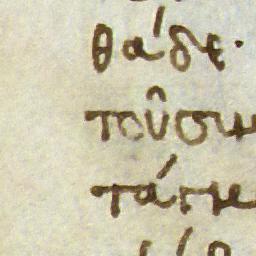 θάδε·
τοῦσιμ
τάγμ